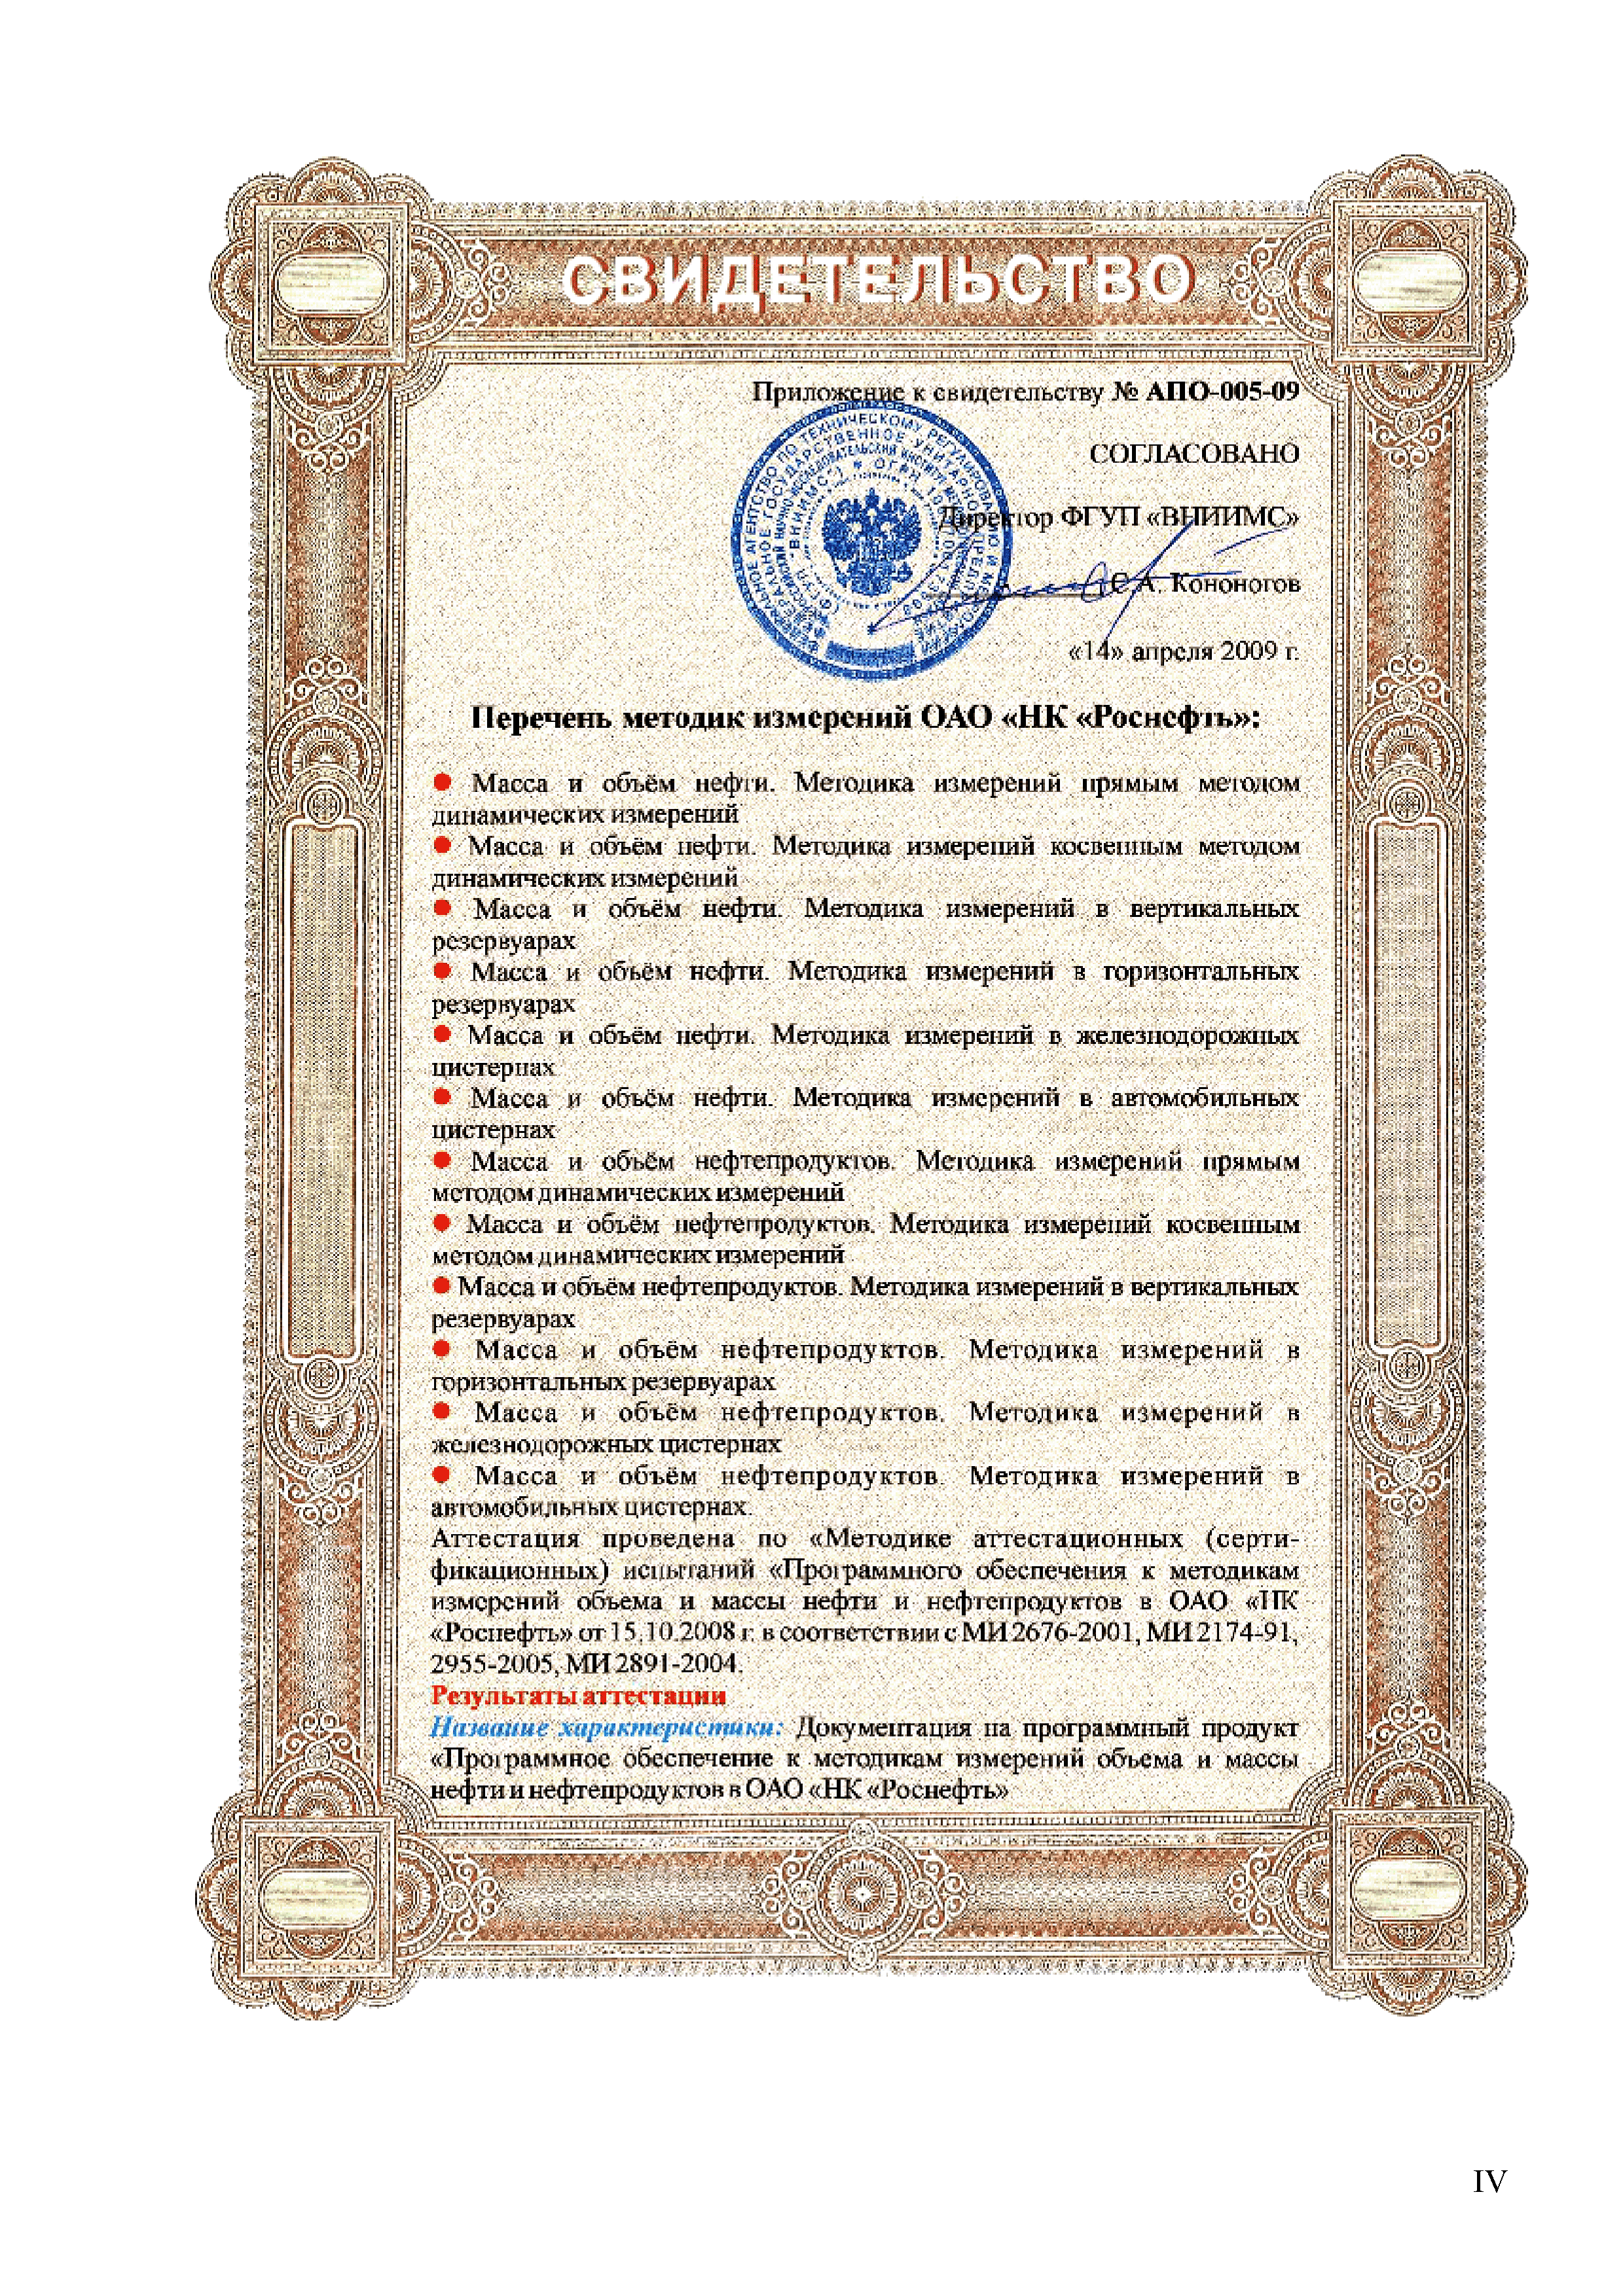 СВИДЕТЕЛЬСТВО
Приложение к свидетельству № АПО-005-09
СОГЛАСОВАНО
Директор ФГУП «ВНИИМС»
С.А. Кононогов
«14» апреля 2009 г.
Перечень методик измерений ОАО «НК «Роснефть»:
● Масса и объём нефти. Методика измерений прямым методом
динамических измерений
● Масса и объём нефти. Методика измерений косвенным методом
динамических измерений
● Масса и объём нефти. Методика измерений в вертикальных
резервуарах
● Масса и объём нефти. Методика измерений в горизонтальных
резервуарах
● Масса и объём нефти. Методика измерений в железнодорожных
цистернах
● Масса и объём нефти. Методика измерений в автомобильных
цистернах
● Масса и объём нефтепродуктов. Методика измерений прямым
методом динамических измерений
● Масса и объём нефтепродуктов. Методика измерений косвенным
методом динамических измерений
● Масса и объём нефтепродуктов. Методика измерений в вертикальных
резервуарах
● Масса и объём нефтепродуктов. Методика измерений в
горизонтальных резервуарах
● Масса и объём нефтепродуктов. Методика измерений в
железнодорожных цистернах
● Масса и объём нефтепродуктов. Методика измерений в
автомобильных цистернах.
Аттестация проведена по «Методике аттестационных (серти-
фикационных) испытаний «Программного обеспечения к методикам
измерений объема и массы нефти и нефтепродуктов в ОАО «НК
«Роснефть» от 15.10.2008 г. в соответствии с МИ 2676-2001, МИ 2174-91,
2955-2005, МИ 2891-2004.
Результаты аттестации
Название характеристики: Документация на программный продукт
«Программное обеспечение к методикам измерений объема и массы
нефти и нефтепродуктов в ОАО «НК «Роснефть»
IV